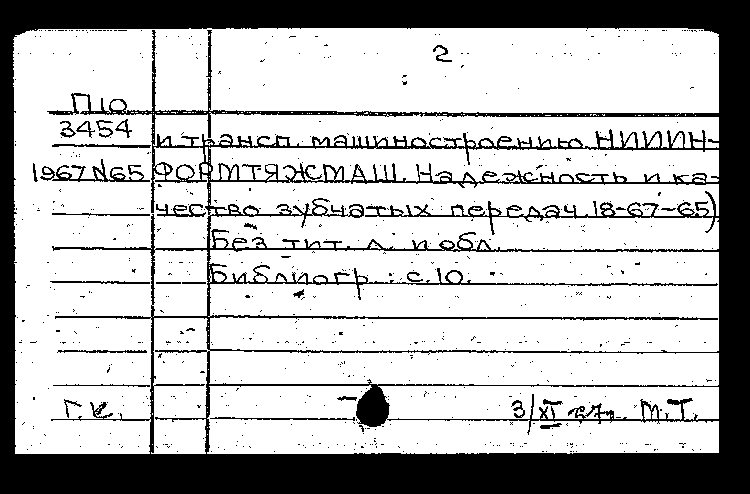 2
П10
3454
и трансп. машиностроению НИИИН-
1967 N65 ФОРМТЯЖМАШ. Надежность и ка-
чество зубчатых передач. 18-67-65)
Без тит. л. и обл.
Библиогр.: с. 10.
Г.К. 3/XI М.Т.